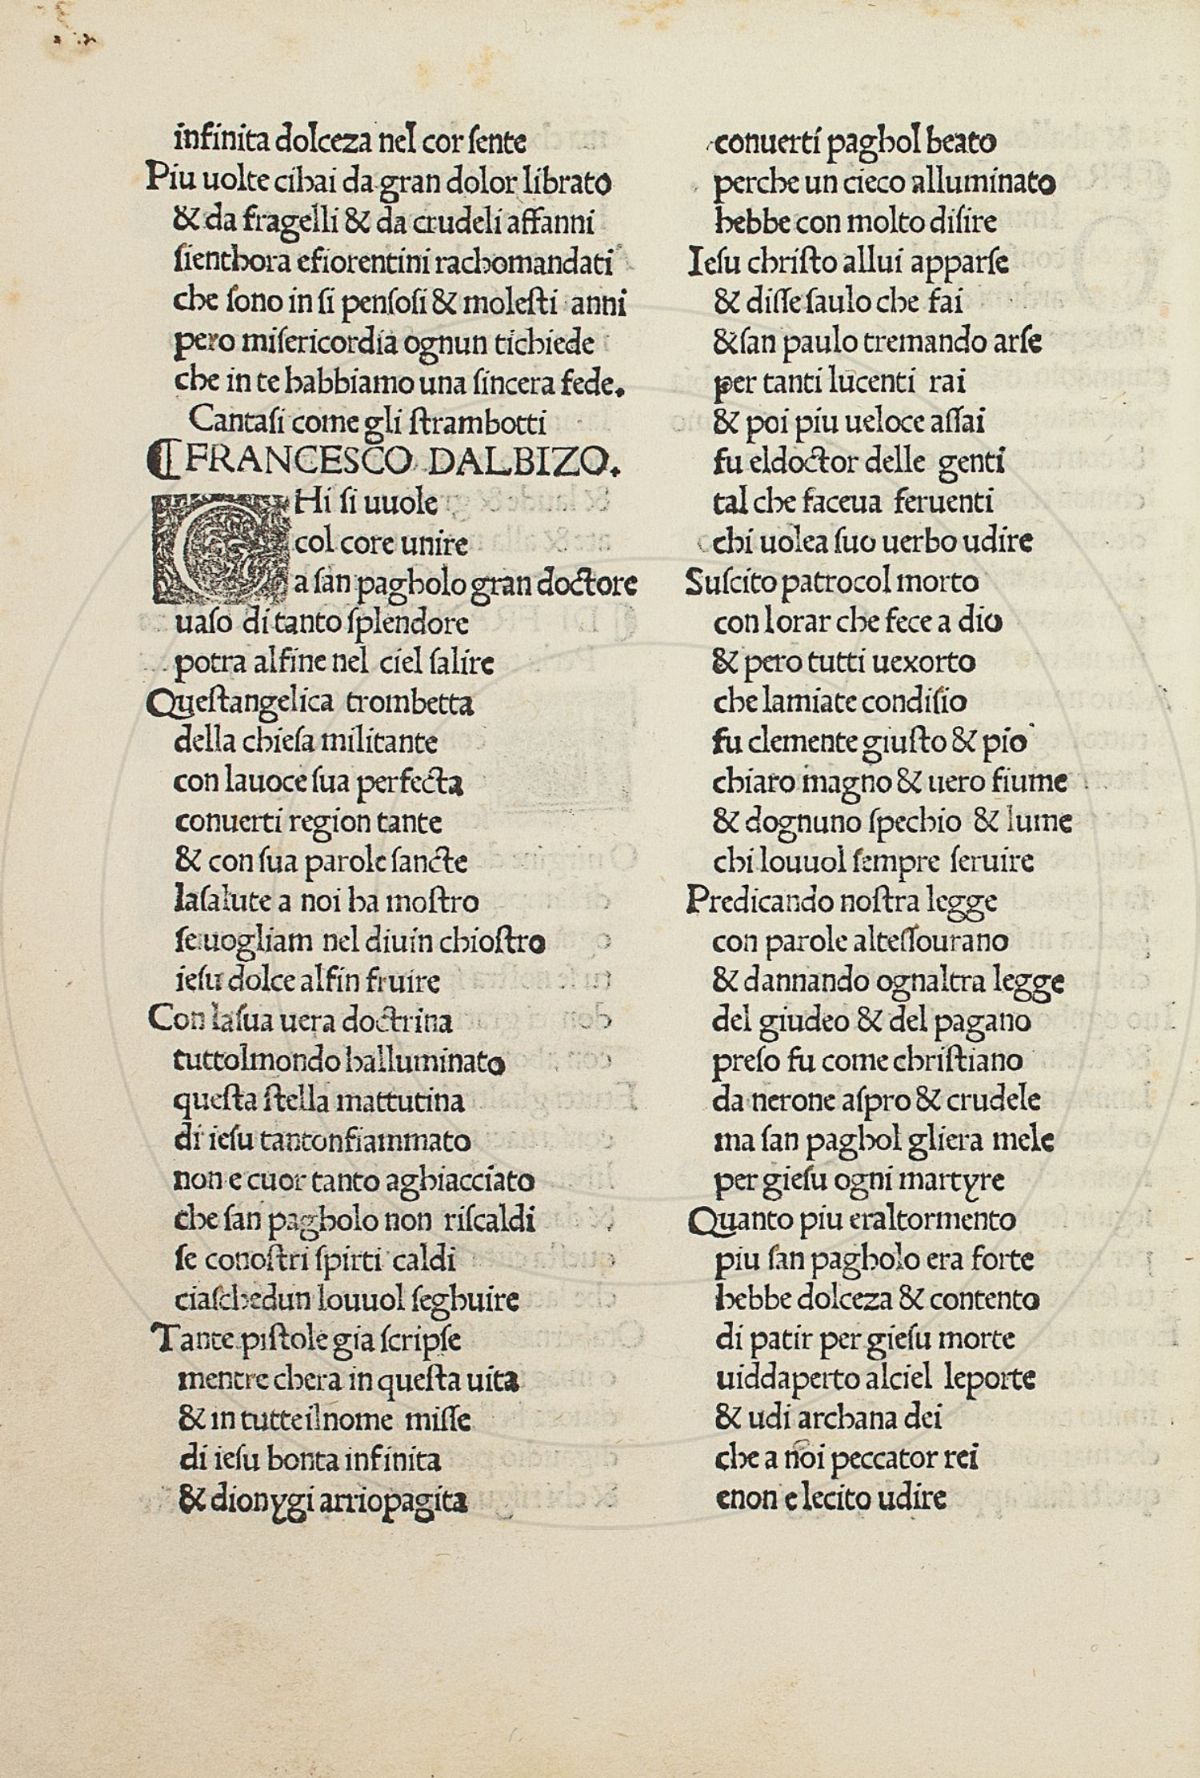 infinita dolceza nel cor ſente
Piu uolte cihai da gran dolor librato
& da fragelli & da crudeli affanni
ſienthora efiorentini rachomandati
che ſono in ſi penſoſi & moleſti anni
pero miſericordia ognun tichiede
che in te habbiamo una ſincera fede.
Cantaſi come gli ſtrambotti
¶FRANCESCO DALBIZO.
CHi ſi uuole
col core unire
a ſan pagholo gran doctore
uaſo di tanto ſplendore
potra alfine nel ciel ſalire
Queſtangelica trombetta
della chieſa militante
con lauoce ſua perfecta
conuerti region tante
& con ſua parole ſancte
laſalute a noi ha moſtro
ſe uogliam nel diuin chioſtro
ieſu dolce alfin fruire
Con laſua uera doctrina
tuttolmondo halluminato
queſta ſtella mattutina
di ieſu tantonfiammato
non e cuor tanto aghiacciato
che ſan pagholo non riſcaldi
ſe conoſtri ſpirti caldi
ciaſchedun louuol ſeghuire
Tante piſtole gia ſcripſe
mentre chera in queſta uita
& in tutteilnome miſſe
di ieſu bonta infinita
& dionygi arriopagita
conuerti paghol beato
perche un cieco alluminato
hebbe con molto diſire
Ieſu chriſto allui apparſe
& diſſe ſaulo che fai
&ſan paulo tremando arſe
per tanti lucenti rai
& poi piu ueloce aſſai
fu eldoctor delle genti
tal che faceua feruenti
chi uolea ſuo uerbo udire
Suſcito patrocol morto
con lorar che fece a dio
& pero tutti uexorto
che lamiate condiſio
fu clemente giuſto & pio
chiaro magno & uero fiume
& dognuno ſpechio & lume
chi louuol ſempre ſeruire
Predicando noſtra legge
con parole alteſſourano
& dannando ognaltra legge
del giudeo & del pagano
preſo fu come chriſtiano
da nerone aſpro & crudele
ma ſan paghol gliera mele
per gieſu ogni martyre
Quanto piu eraltormento
piu ſan pagholo era forte
hebbe dolceza & contento
di patir per gieſu morte
uiddaperto alciel leporte
& udi archana dei
che a noi peccator rei
enon e lecito udire